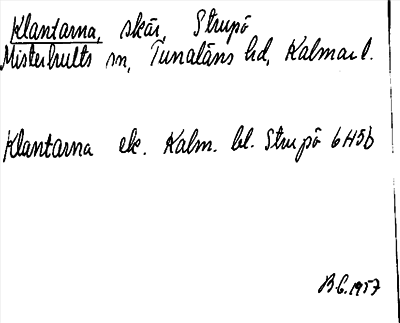 Klantarna, skär, Strupö
Misterhults sn, Tunaläns hd, Kalmar l.
Klantarna ek. Kalm. bl. Strupö 6H5b
B.C. 1957